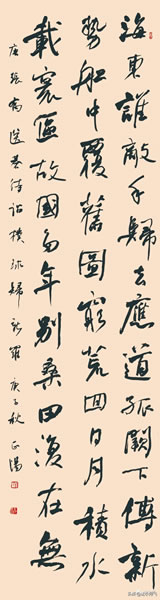 海東誰敵手歸去應道孤闕下傳新
勢船中覆舊圖窮荒回日月積水
載寰區故國多年別桑田復在無
唐張喬送棊待詔樸球歸新羅 庚子秋